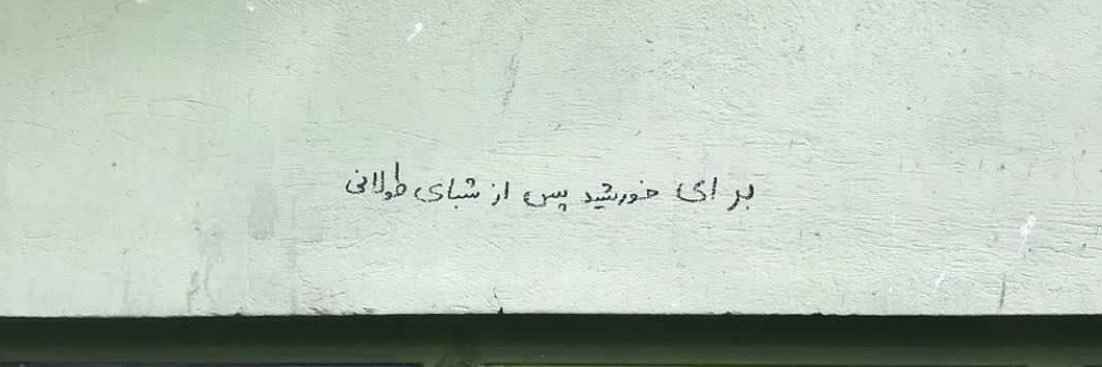 برای خورشید پس از شبای طولانی